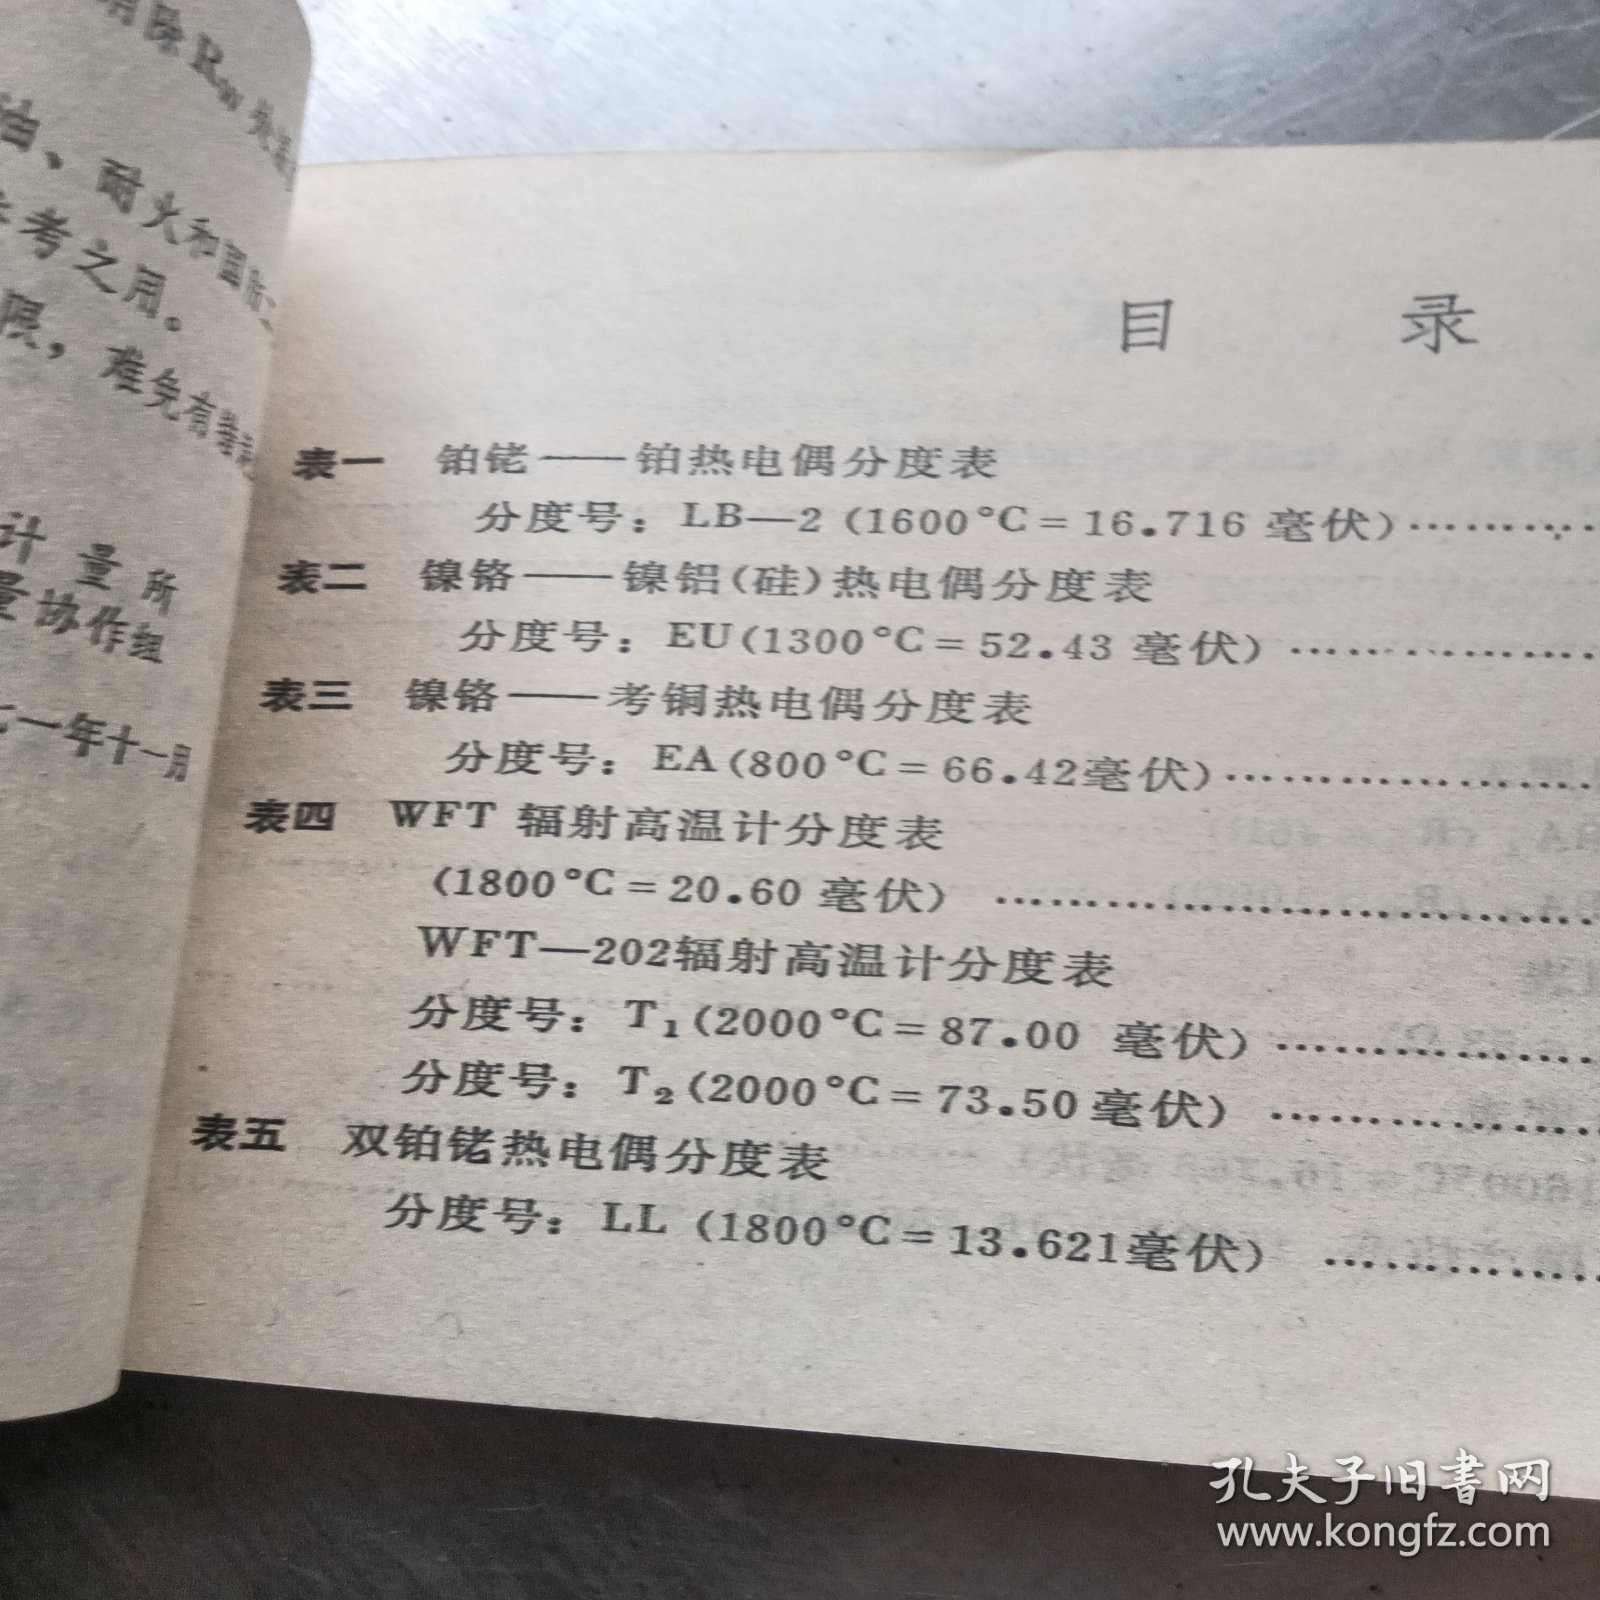 消除 R
油、耐火和
参考之用。
限，难免有
计量所
量协作组
七一年十一月
目 录
表一 铂铑——铂热电偶分度表
分度号：LB—2 (1600°C＝16.716 毫伏)………
表二 镍铬——镍铝(硅)热电偶分度表
分度号：EU(1300°C＝52.43 毫伏)………
表三 镍铬——考铜热电偶分度表
分度号：EA(800°C＝66.42毫伏)………
表四 WFT 辐射高温计分度表
(1800°C＝20.60 毫伏) ………
WFT—202辐射高温计分度表
分度号：T₁(2000°C＝87.00 毫伏)………
分度号：T₂(2000°C＝73.50毫伏) ………
表五 双铂铑热电偶分度表
分度号：LL (1800°C＝13.621毫伏) ………
孔夫子旧书网
www.kongfz.com